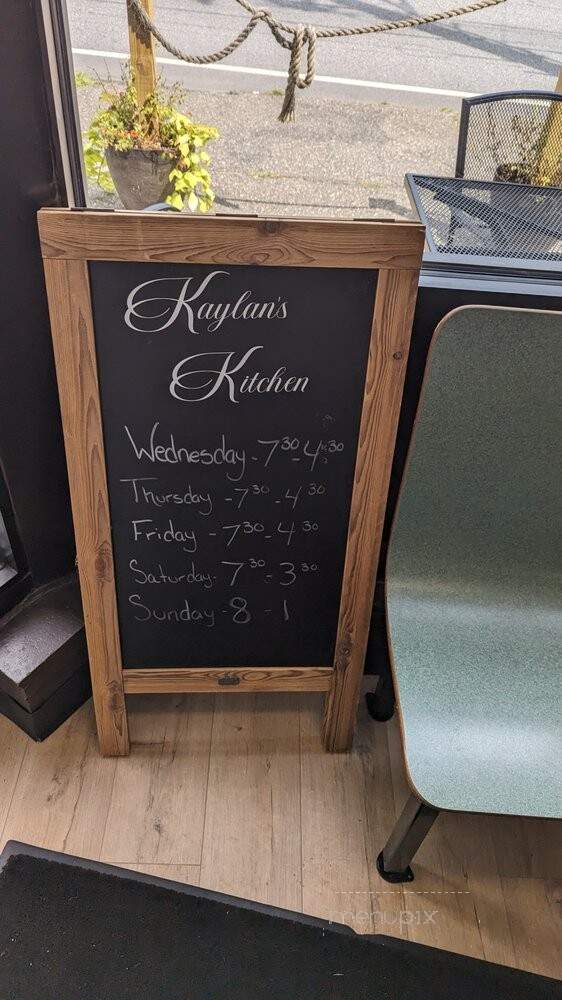 Kaylan's
Kitchen
Wednesday - 7³⁰ - 4³⁰
Thursday - 7³⁰ - 4³⁰
Friday - 7³⁰ - 4³⁰
Saturday - 7³⁰ - 3³⁰
Sunday - 8 - 1
menupix